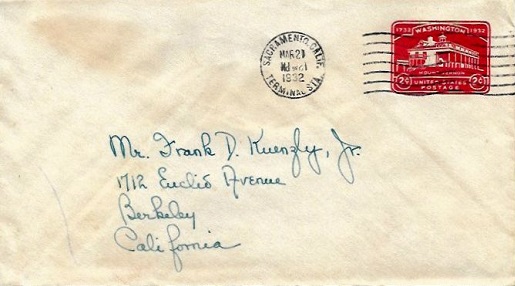 SACRAMENTO, CALIF.
MAR 21
1932
TERMINAL STA.
1732 WASHINGTON 1932
MOUNT VERNON
2¢ UNITED STATES 2¢
POSTAGE
Mr. Frank D. Kuenzly, Jr.
1712 Euclid Avenue
Berkeley
California